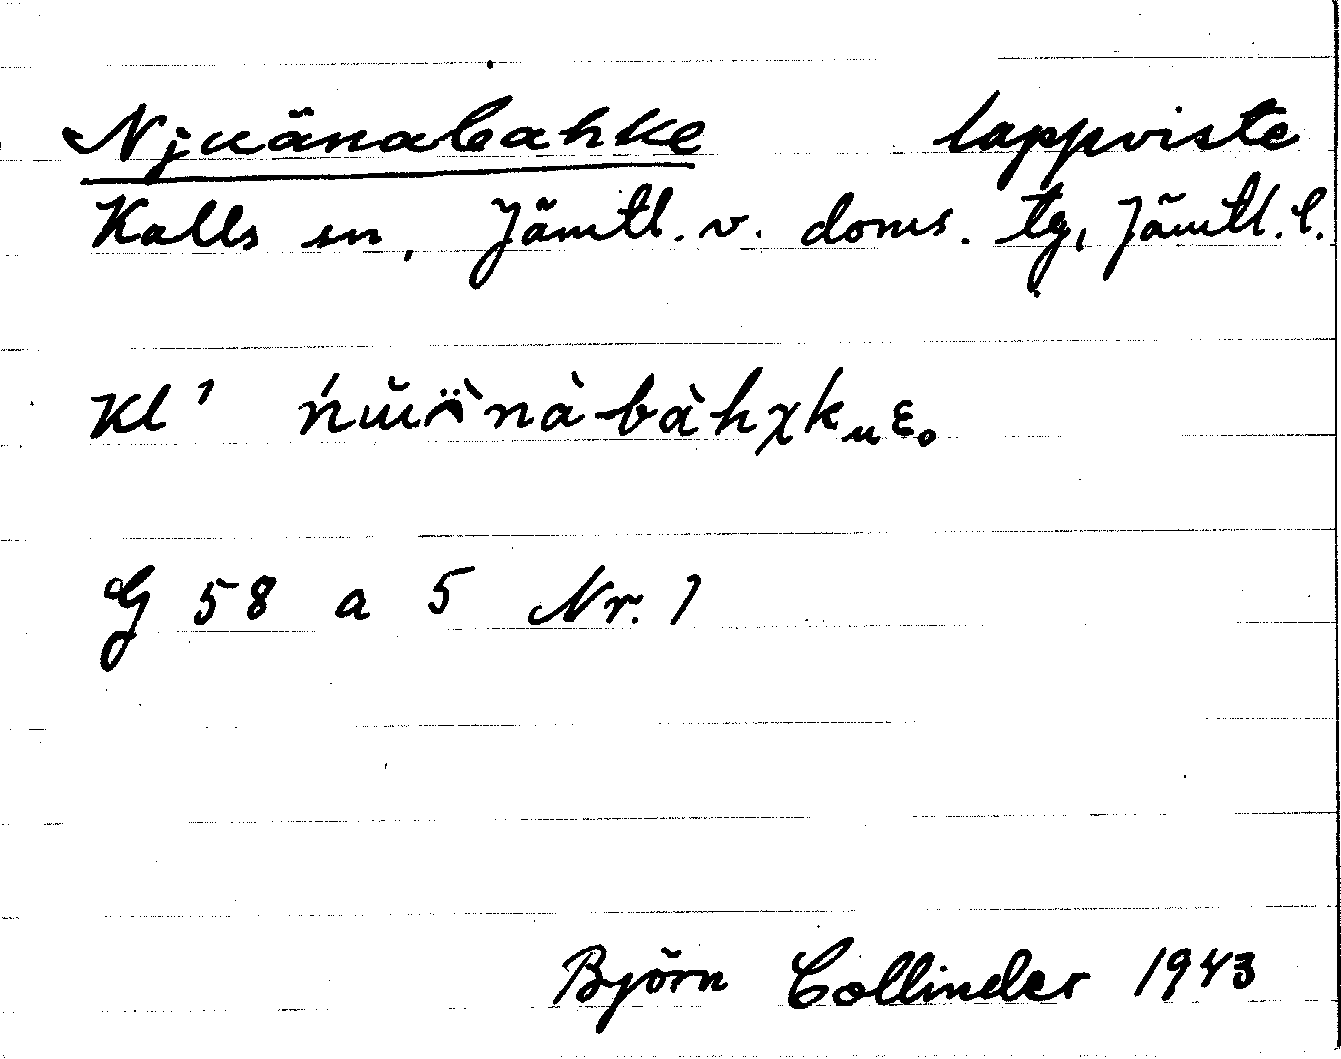 Njuänabahke lappviste
Kalls sn, Jämtl. v. doms. tg, Jämtl. l.
Kl 1
G 58 a 5 Nr. 1
Björn Collinder 1943